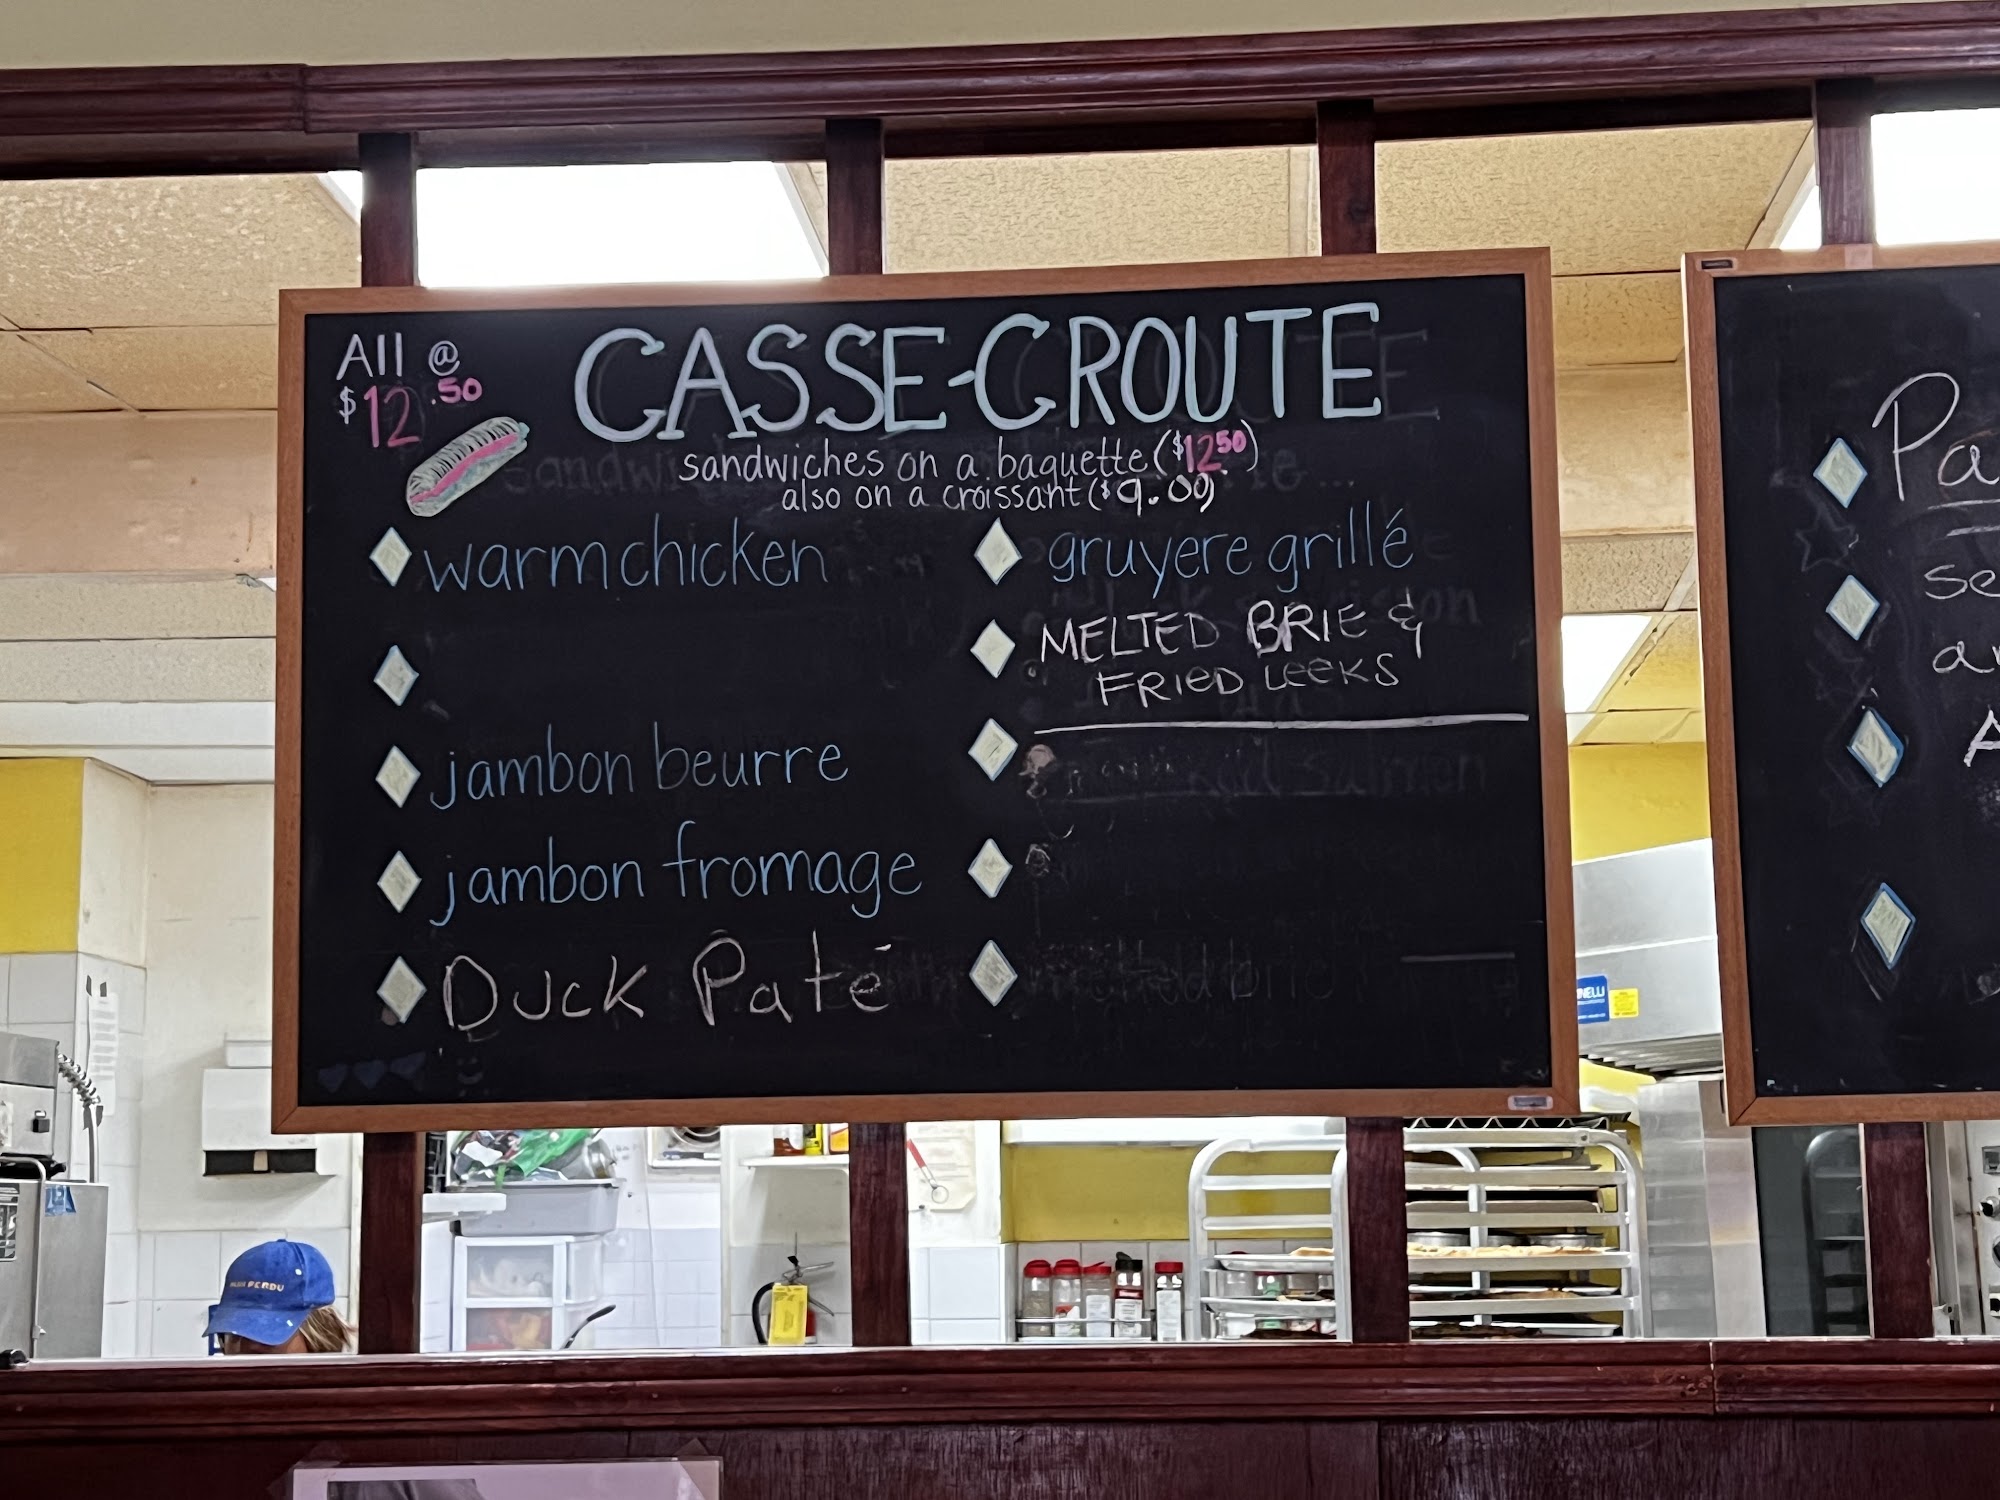 All @
$12.50
CASSE-CROUTE
sandwiches on a baguette ($12.50)
also on a croissant ($9.00)
warm chicken
jambon beurre
jambon fromage
Duck Paté
gruyere grillé
MELTED BRIE &
FRIED LEEKS
salmon
melted brie
Pa
se
A
PERDU
NELLI